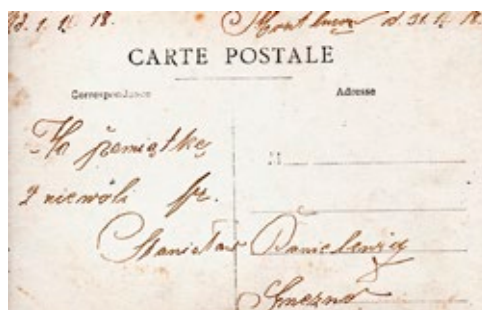 d. 1. 11. 18. Montluçon d. 31. 12. 18.
CARTE POSTALE
Correspondance Adresse
Na pamiątkę
M
z niewoli fr.
Stanisław Danielewicz
Gniezno